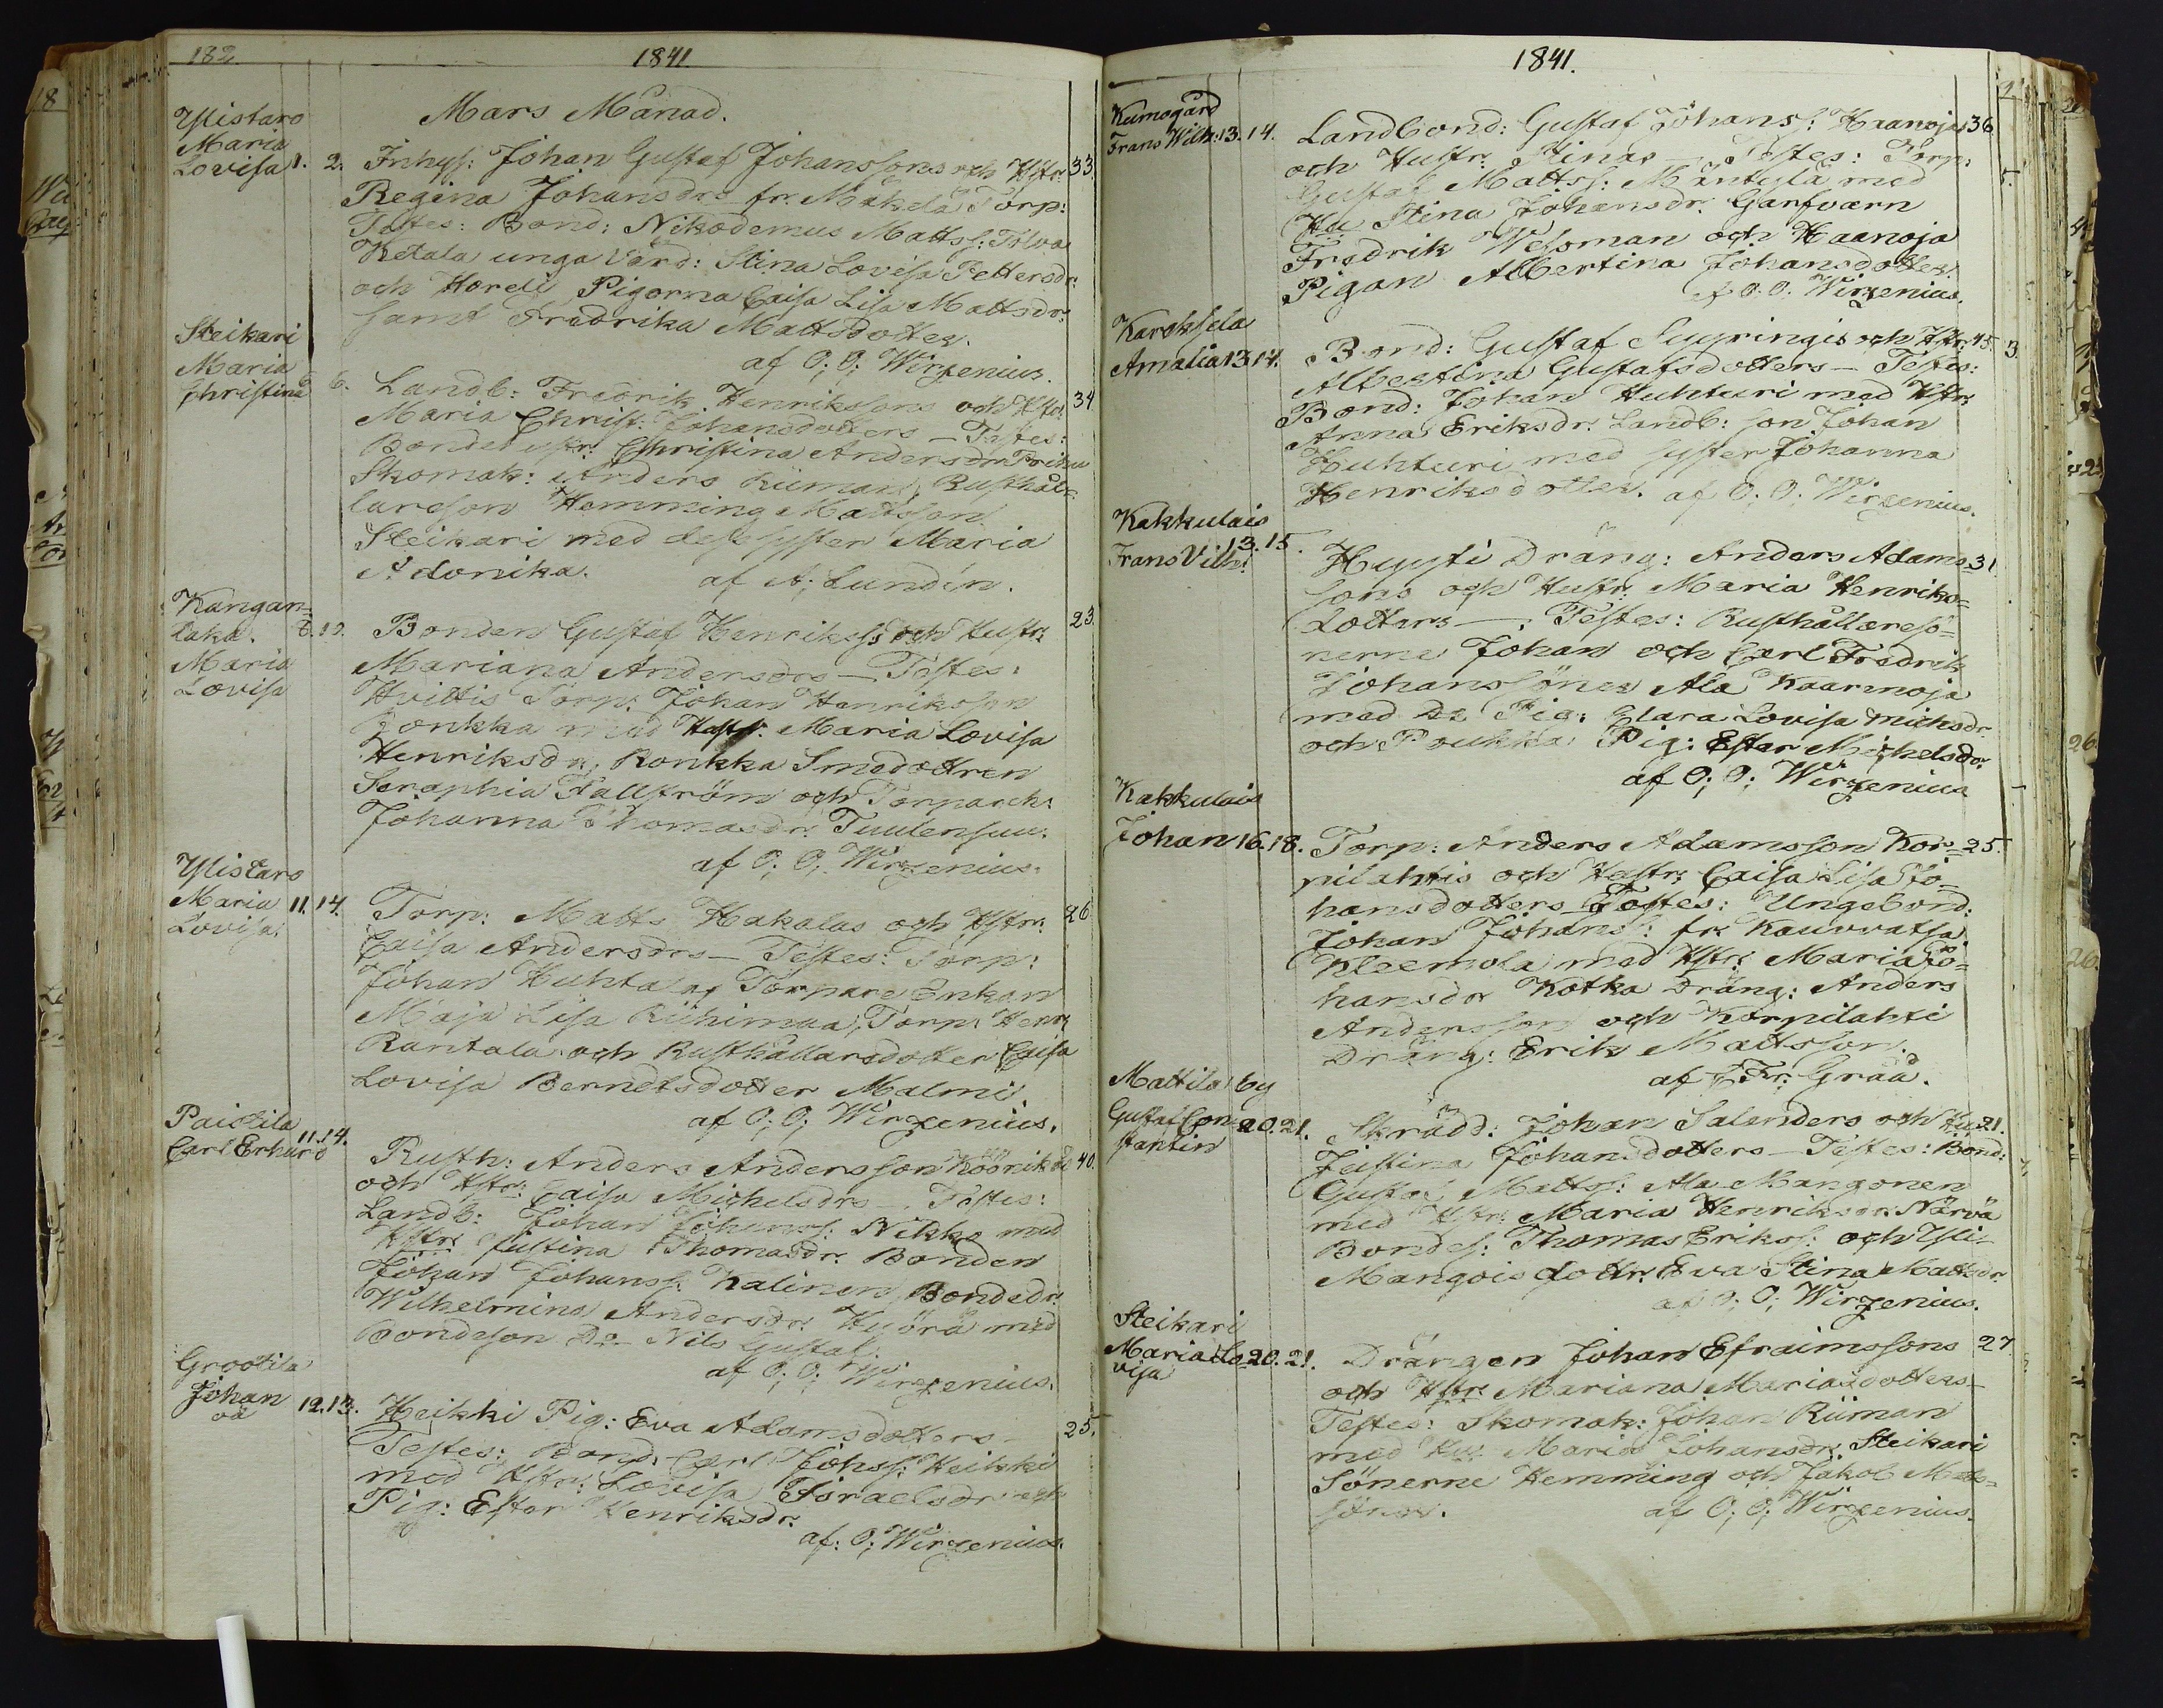 182
1841.
Mars Månad.
Ylistaro
Maria
Lovisa 1. 2. Inhys: Johan Gustaf Johanssons och Hstr: 33.
Regina Johansdrs fr. Mäkelä Torp:
Testes: Bond: Nikodemus Mattss: Tolva
Ketala unga Värd: Stina Lovisa Pettersdr:
och Horeli Pigorna Caisa Lisa Mattsdr:
samt Fredrika Mattsdotter.
af O; O; Wirzenius.
Steikari
Maria
Christina 6. Landb: Fredrik Henrikssons och Hstr: 34
Maria Christ: Johansdotters — Testes:
Christina Andersdr
Skomak: Anders Riiman, Rusthål-
lareson Hemming Mattsson
Steikari med dess syster Maria
af A; Lundén.
Kangan-
taka. 8. 10. Bonden Gustaf Henrikss: och Hustr: 23.
Maria
Lovisa
Mariana Andersdrs — Testes:
Hvittis Torp: Johan Henriksson
Ronkka med Hstr: Maria Lovisa
Henriksdr; Ronkka Smedottren
Seraphia Fallström och Torparedr:
Johanna Thomasdr. Tuulensuu.
af O; O; Wirzenius.
Ylistaro
Maria 11. 14.
Lovisa.
Torp: Matts Hakalas och Hstr: 26
Caisa Andersdrs — Testes: Torp:
Johan Huhtala, Torpare Enkan
Maja Lisa Riihimaa, Torp: Henr:
Rantala och Rusthållaredotter Caisa
Lovisa Berndtsdotter Malmi.
af O; O; Wirzenius.
Paistila
Carl Erhard 11. 14.
Rusth: Anders Andersson Köönikä 40.
och Hstr: Caisa Michelsdrs — Testes:
Landb: Johan Johanss: Nikka med
Hstr: Justina Thomasdr. Bonden
Johan Johanss: Kalinen, Bondedr:
Wilhelmina Andersdr. Kuörä med
Bondeson Do Nils Gustaf.
af O; O; Wirzenius.
Grootila
Johan 12. 13.
oä
Heikki Pig: Eva Adamsdotters — 25.
Testes: Bond: Carl Johss: Heikki
med Hstr: Lovisa Israelsdr och
Pig: Ester Henriksdr.
af: O; Wirzenius.
1841.
Kumogård
Frans Wilh: 13. 14.
Landbond: Gustaf Johanss: Haanojas 36.
och Hustr: Stinas — Testes: Torp:
Gustaf Mattss: Mäntylä med
Hu Stina Johansdr. Garfvarn
Fredrik Wesoman och Haanoja
Pigan Albertina Johansdotter.
af O. O. Wirzenius.
Karoksela
Amalia 13 14. Bond: Gustaf Suyringis och Hstr: 45.
Albertina Gustafsdotters — Testes:
Bond: Johan Huhturi med Hstr:
Anna Eriksdr. Landb: son Johan
Huhturi med syster Johanna
Henriksdotter. af O; O; Wirzenius.
Kakkulais
Frans Vilh: 13. 15.
Hyysti Dräng: Anders Adams- 31
sons och Hustr: Maria Henriks-
dotters — Testes: Rusthållaresö-
nerne Johan och Carl Fredrik
Johanssöner Ala Kaarnoja
med Do Pig: Clara Lovisa Michsdr
och Poukka Pig: Ester Michelsdr.
af O; O; Wirzenius
Kakkulais
Johan 16. 18. Torp: Anders Adamsson Kor- 25.
pilahtis och Hustr: Caisa Lisa Jo-
hansdotters Testes: Ungebond:
Johan Johans: fr. Kauvatsa
Kleemola med Hstr: Maria Jo-
hansdr Kotka Dräng: Anders
Andersson och Korpilahti
Dräng: Erik Mattsson.
af Fr: Graa.
Mattila by
Gustaf Con- 20. 21.
stantin
Skrädd: Johan Salanders och Hu 21.
Justina Johansdotters — Testes: Bond:
Gustaf Mattss: Ala Mangonen
med Hstr: Maria Henriksdr. Närvä
Bondes: Thomas Erikss: och Yli-
Mangois dottr. Eva Stina Mattsdr
af O; O; Wirzenius.
Steikari
Maria Lo- 20. 21.
visa
Drängen Johan Efraimssons 27
och Hstr: Mariana Mariasdotters —
Testes: Skomak: Johan Riiman
med Hu Maria Johansdr. Steikari
Sönerne Hemming och Jakob Mats-
söner. af O; O; Wirzenius.